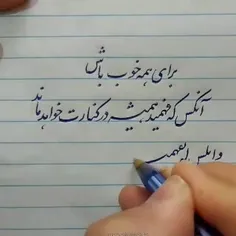 برای همه خوب باش
آنکس که فهمید همیشه در کنارت خواهد ماند
وآنکس که نفهمید